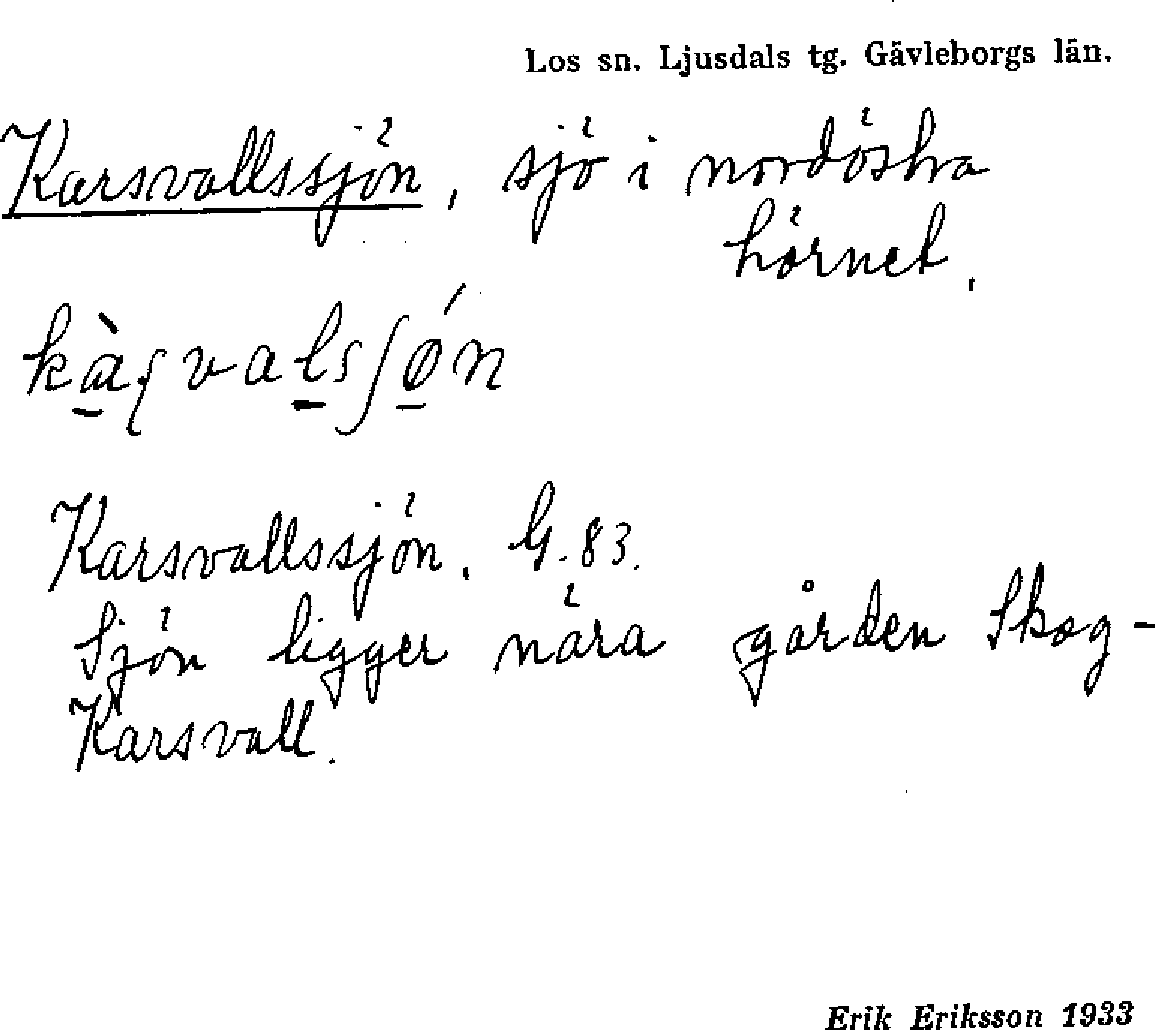 Los sn. Ljusdals tg. Gävleborgs län.
Karsvallssjön, sjö i nordöstra
hörnet.
kàʂvalsʃǿn
Karsvallssjön. G. 83.
Sjön ligger nära gården Skog-
Karsvall.
Erik Eriksson 1933